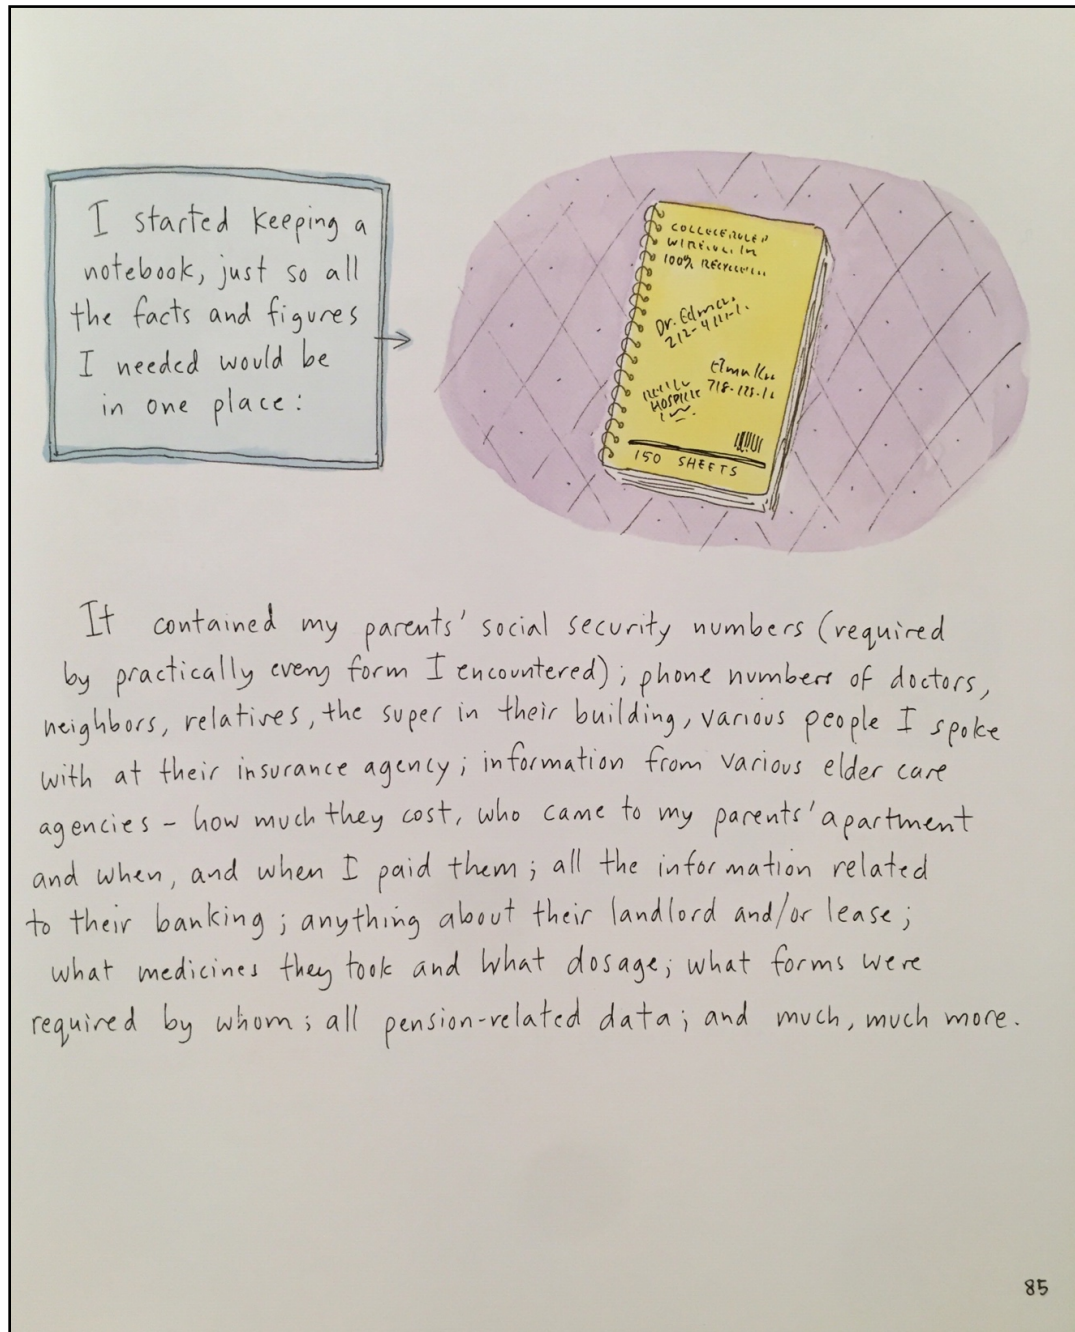 I started keeping a
notebook, just so all
the facts and figures
I needed would be
in one place:
100%
Dr.
150 SHEETS
It contained my parents' social security numbers (required
by practically every form I encountered); phone numbers of doctors,
neighbors, relatives, the super in their building, various people I spoke
with at their insurance agency; information from various elder care
agencies - how much they cost, who came to my parents' apartment
and when, and when I paid them; all the information related
to their banking; anything about their landlord and/or lease;
what medicines they took and what dosage; what forms were
required by whom; all pension-related data; and much, much more.
85